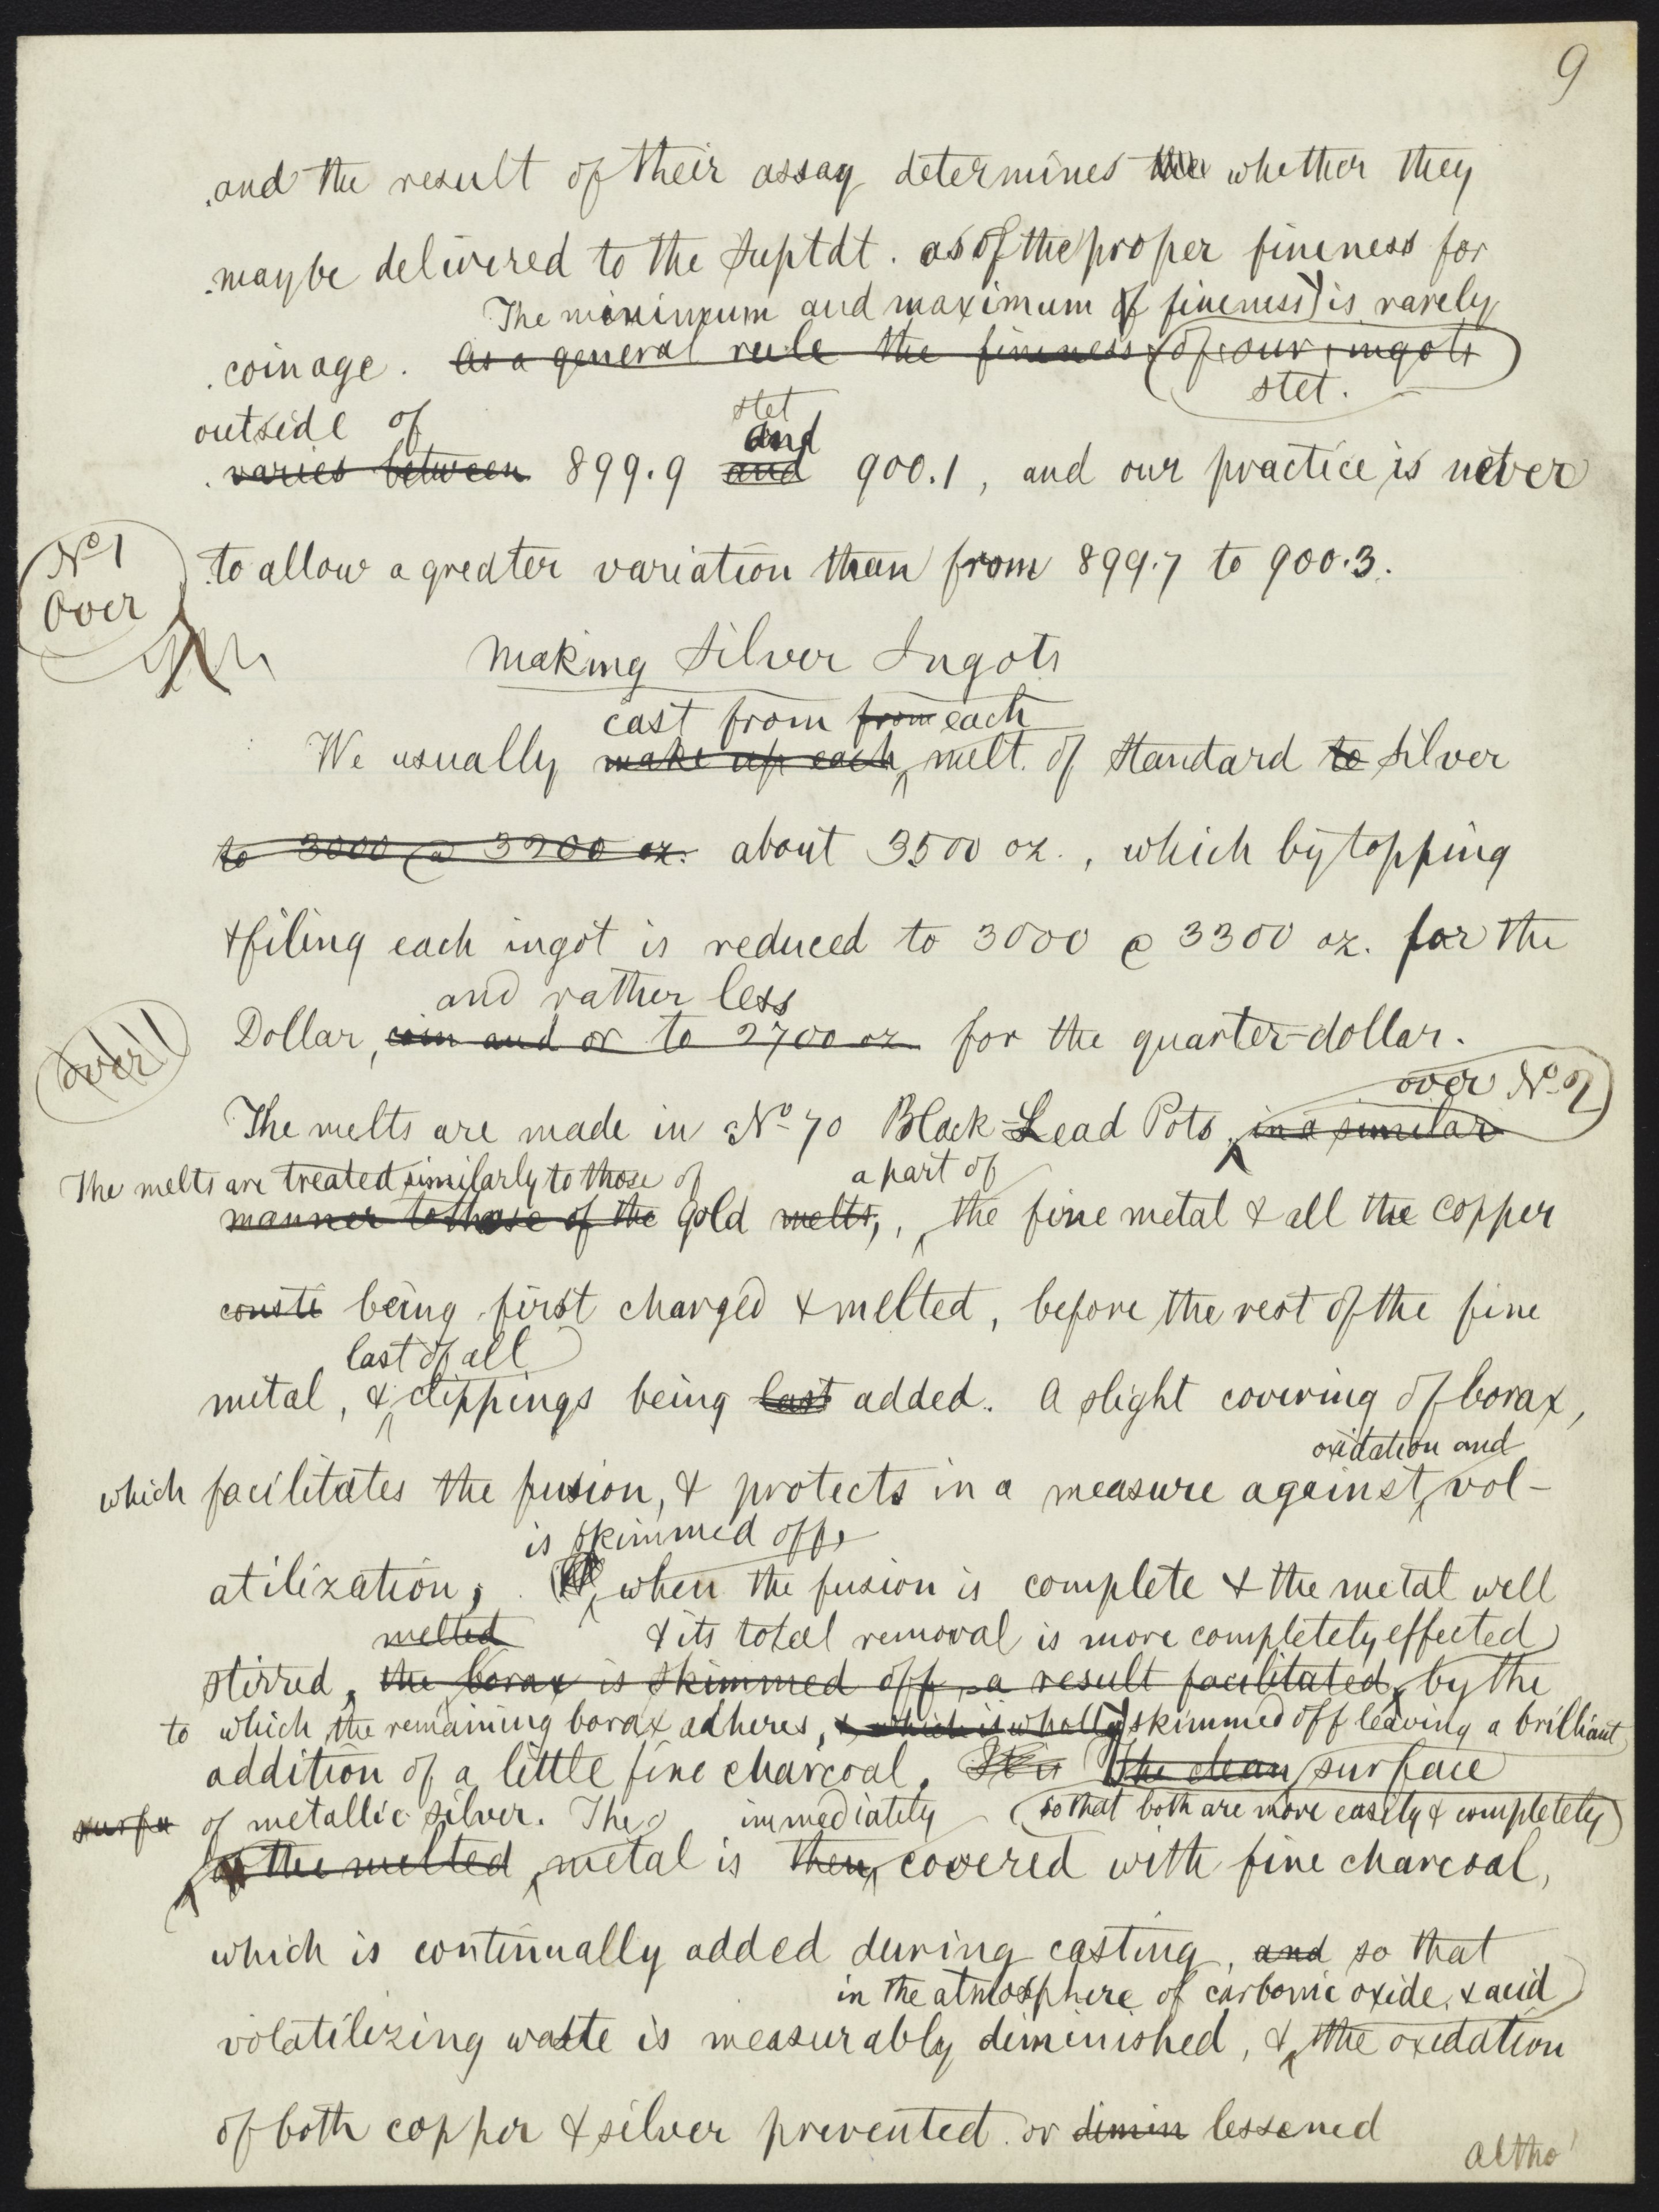 9
and the result of their assay determines the whether they
may be delivered to the Suptdt. as of the proper fineness for
The minimum and maximum of fineness is rarely
coinage. As a general rule the fineness of our ingots
stet.
outside of
stet
and
varies between 899.9 and 900.1, and our practice is never
No 1
Over
to allow a greater variation than from 899.7 to 900.3.
Making Silver Ingots
cast from from each
We usually make up each melt of Standard to Silver
to 3000 @ 3200 oz. about 3500 oz., which by topping
& filing each ingot is reduced to 3000 @ 3300 oz. for the
and rather less
over!
Dollar, coin and or to 2700 oz for the quarter-dollar.
over No 2
The melts are made in No 70 Black Lead Pots, in a similar
The melts are treated similarly to those of a part of
manner to those of the Gold melts, the fine metal & all the copper
consti being first charged & melted, before the rest of the fine
last of all
metal, & clippings being last added. A slight covering of borax,
oxidation and
which facilitates the fusion, & protects in a measure against vol-
is skimmed off,
atilization, when the fusion is complete & the metal well
melted & its total removal is more completely effected
stirred, the borax is skimmed off, a result facilitated by the
to which the remaining borax adheres, & which is wholly skimmed off leaving a brilliant
addition of a little fine charcoal. The clean surface
surfa of metallic silver. The immediately so that both are more easily & completely
of the melted metal is then covered with fine charcoal,
which is continually added during casting, and so that
in the atmosphere of carbonic oxide, & acid
volatilizing waste is measurably diminished, & the oxidation
of both copper & silver prevented or dimin lessened
altho'